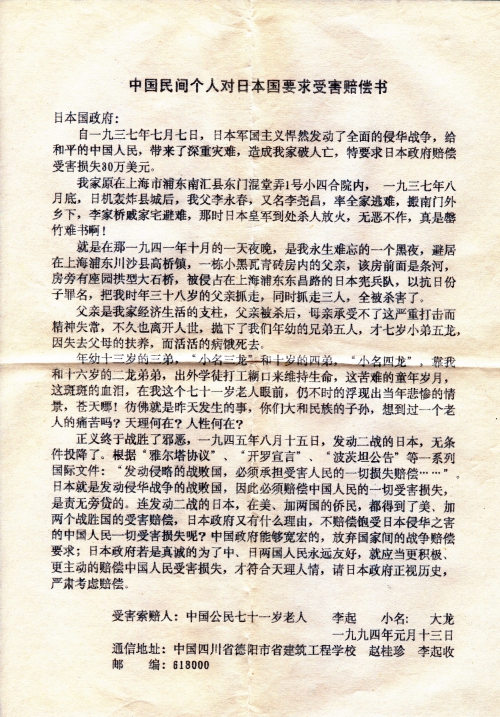 中国民间个人对日本国要求受害赔偿书
日本国政府：
自一九三七年七月七日，日本军国主义悍然发动了全面的侵华战争，给
和平的中国人民，带来了深重灾难，造成我家破人亡，特要求日本政府赔偿
受害损失80万美元。
我家原在上海市浦东南汇县东门混堂弄1号小四合院内，一九三七年八
月底，日机轰炸县城后，我父李永春，又名李尧昌，率全家逃难，搬南门外
乡下，李家桥戚家宅避难，那时日本皇军到处杀人放火，无恶不作，真是罄
竹难书啊！
就是在那一九四一年十月的一天夜晚，是我永生难忘的一个黑夜，避居
在上海浦东川沙县高桥镇，一栋小黑瓦青砖房内的父亲，该房前面是条河，
房旁有座园拱型大石桥，被侵占在上海浦东东昌路的日本宪兵队，以抗日份
子罪名，把我时年三十八岁的父亲抓走，同时抓走三人，全被杀害了。
父亲是我家经济生活的支柱，父亲被杀后，母亲承受不了这严重打击而
精神失常，不久也离开人世，抛下了我们年幼的兄弟五人，才七岁小弟五龙，
因失去父母的扶养，而活活的病饿死去。
年幼十三岁的三弟，“小名三龙”和十岁的四弟，“小名四龙”，靠我
和十六岁的二龙弟弟，出外学徒打工糊口来维持生命，这苦难的童年岁月，
这斑斑的血泪，在我这个七十一岁老人眼前，仍不时的浮现出当年悲惨的情
景，苍天哪！彷佛就是昨天发生的事，你们大和民族的子孙，想到过一个老
人的痛苦吗？天理何在？人性何在？
正义终于战胜了邪恶，一九四五年八月十五日，发动二战的日本，无条
件投降了。根据“雅尔塔协议”、“开罗宣言”、“波茨坦公告”等一系列
国际文件：“发动侵略的战败国，必须承担受害人民的一切损失赔偿……”。
日本就是发动侵华战争的战败国，因此必须赔偿中国人民的一切受害损失，
是责无旁贷的。连发动二战的日本，在美、加两国的侨民，都得到了美、加
两个战胜国的受害赔偿，日本政府又有什么理由，不赔偿饱受日本侵华之害
的中国人民一切受害损失呢？中国政府能够宽宏的，放弃国家间的战争赔偿
要求；日本政府若是真诚的为了中、日两国人民永远友好，就应当更积极、
更主动的赔偿中国人民受害损失，才符合天理人情，请日本政府正视历史，
严肃考虑赔偿。
受害索赔人：中国公民七十一岁老人 李起 小名：大龙
一九九四年元月十三日
通信地址：中国四川省德阳市省建筑工程学校 赵桂珍 李起收
邮 编：618000